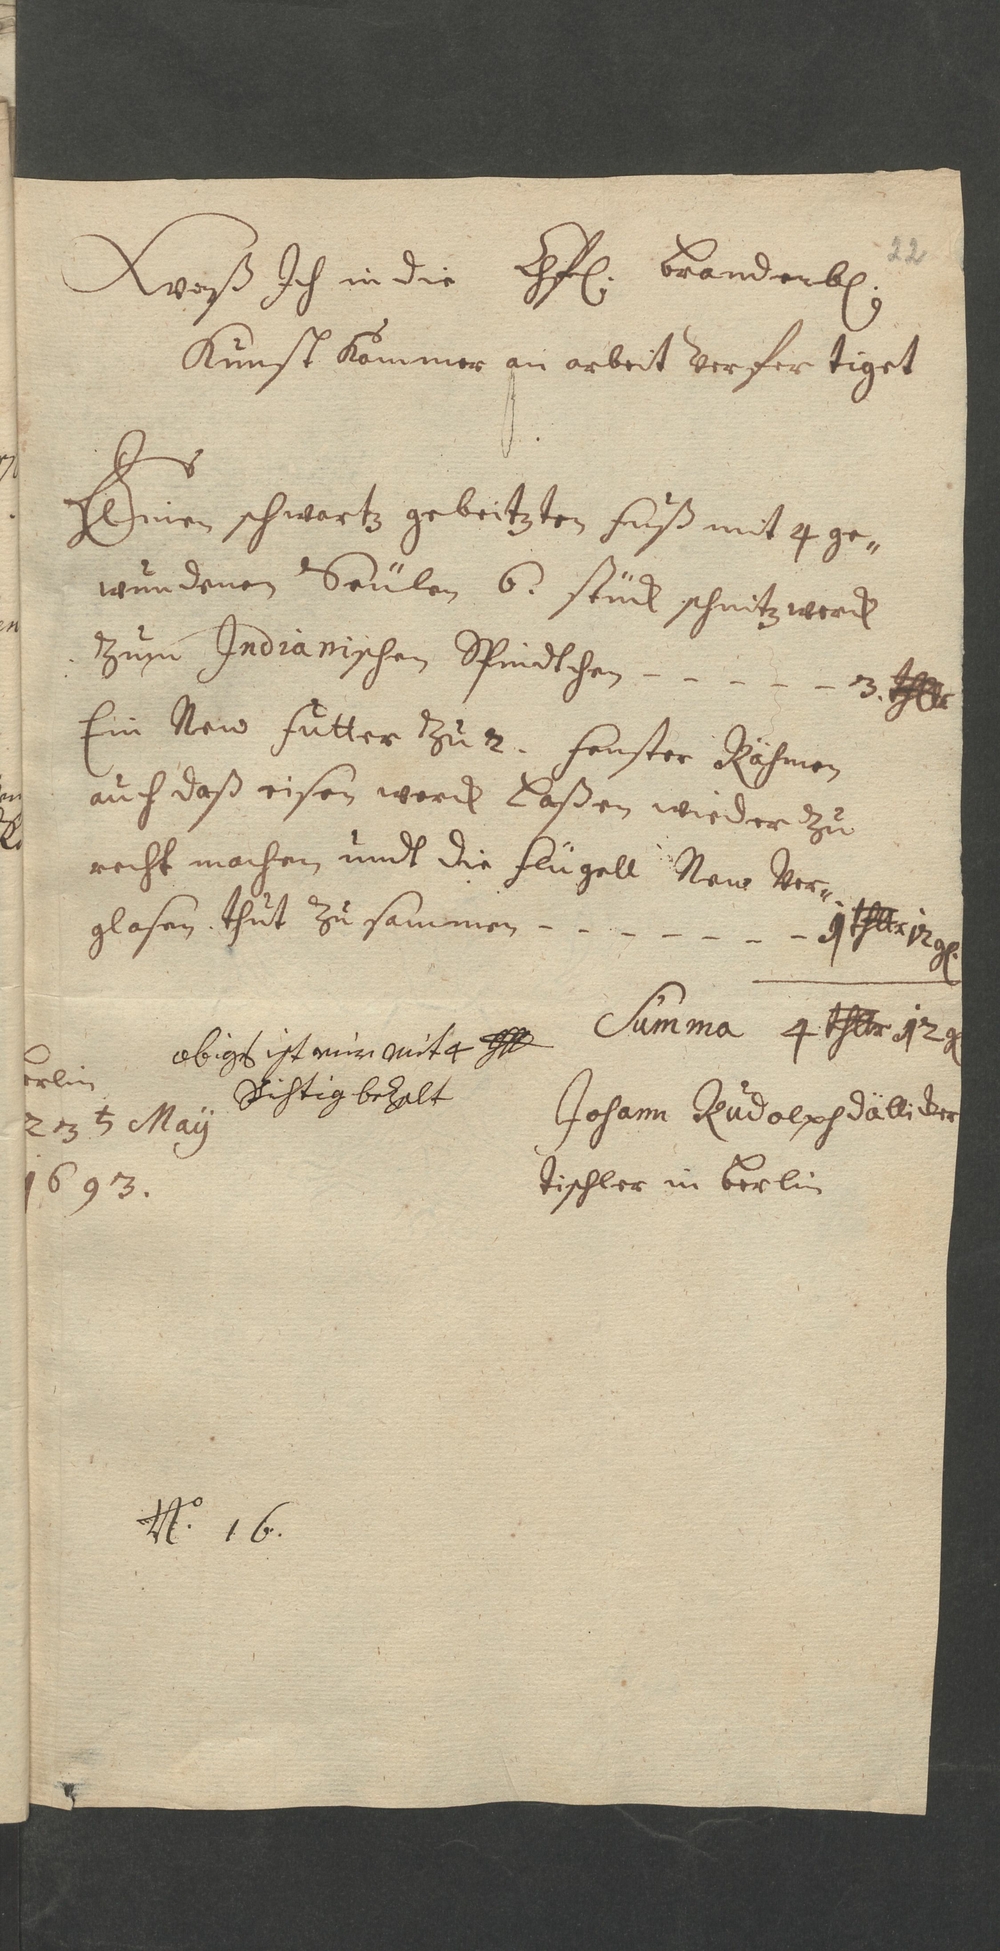 22
Waß Ich in die Chfl: Brandenb:
Kunst Kammer an arbeit verfertiget
Einen schwartz gebeitzten fuß mit 4 ge„
wundenen Seülen 6. stück schnitzwerck
zum Indianischen Spindtchen - - - - - 3. thlr
Ein New futter zu 2. fenster Rähmen
auch daß eisen werck laßen wieder zu
recht machen undt die flügell New ver„
glasen. thut zusammen - - - - - - - 1 thlr 12 gl.
Summa 4 thlr 12 g
obiges ist mir mit 4 thl
Richtig bezalt
erlin
23 t May
1693.
Johann Rudolph dälliker
tischler in Berlin
No. 16.